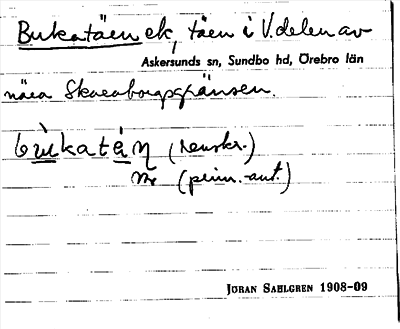 Bukatäen ek, täen i V.delen av
Askersunds sn, Sundbo hd, Örebro län
nära Skaraborgsgränsen.
bùkatèn (renskr.)
(prim.-ant.)
JÖRAN SAHLGREN 1908-09